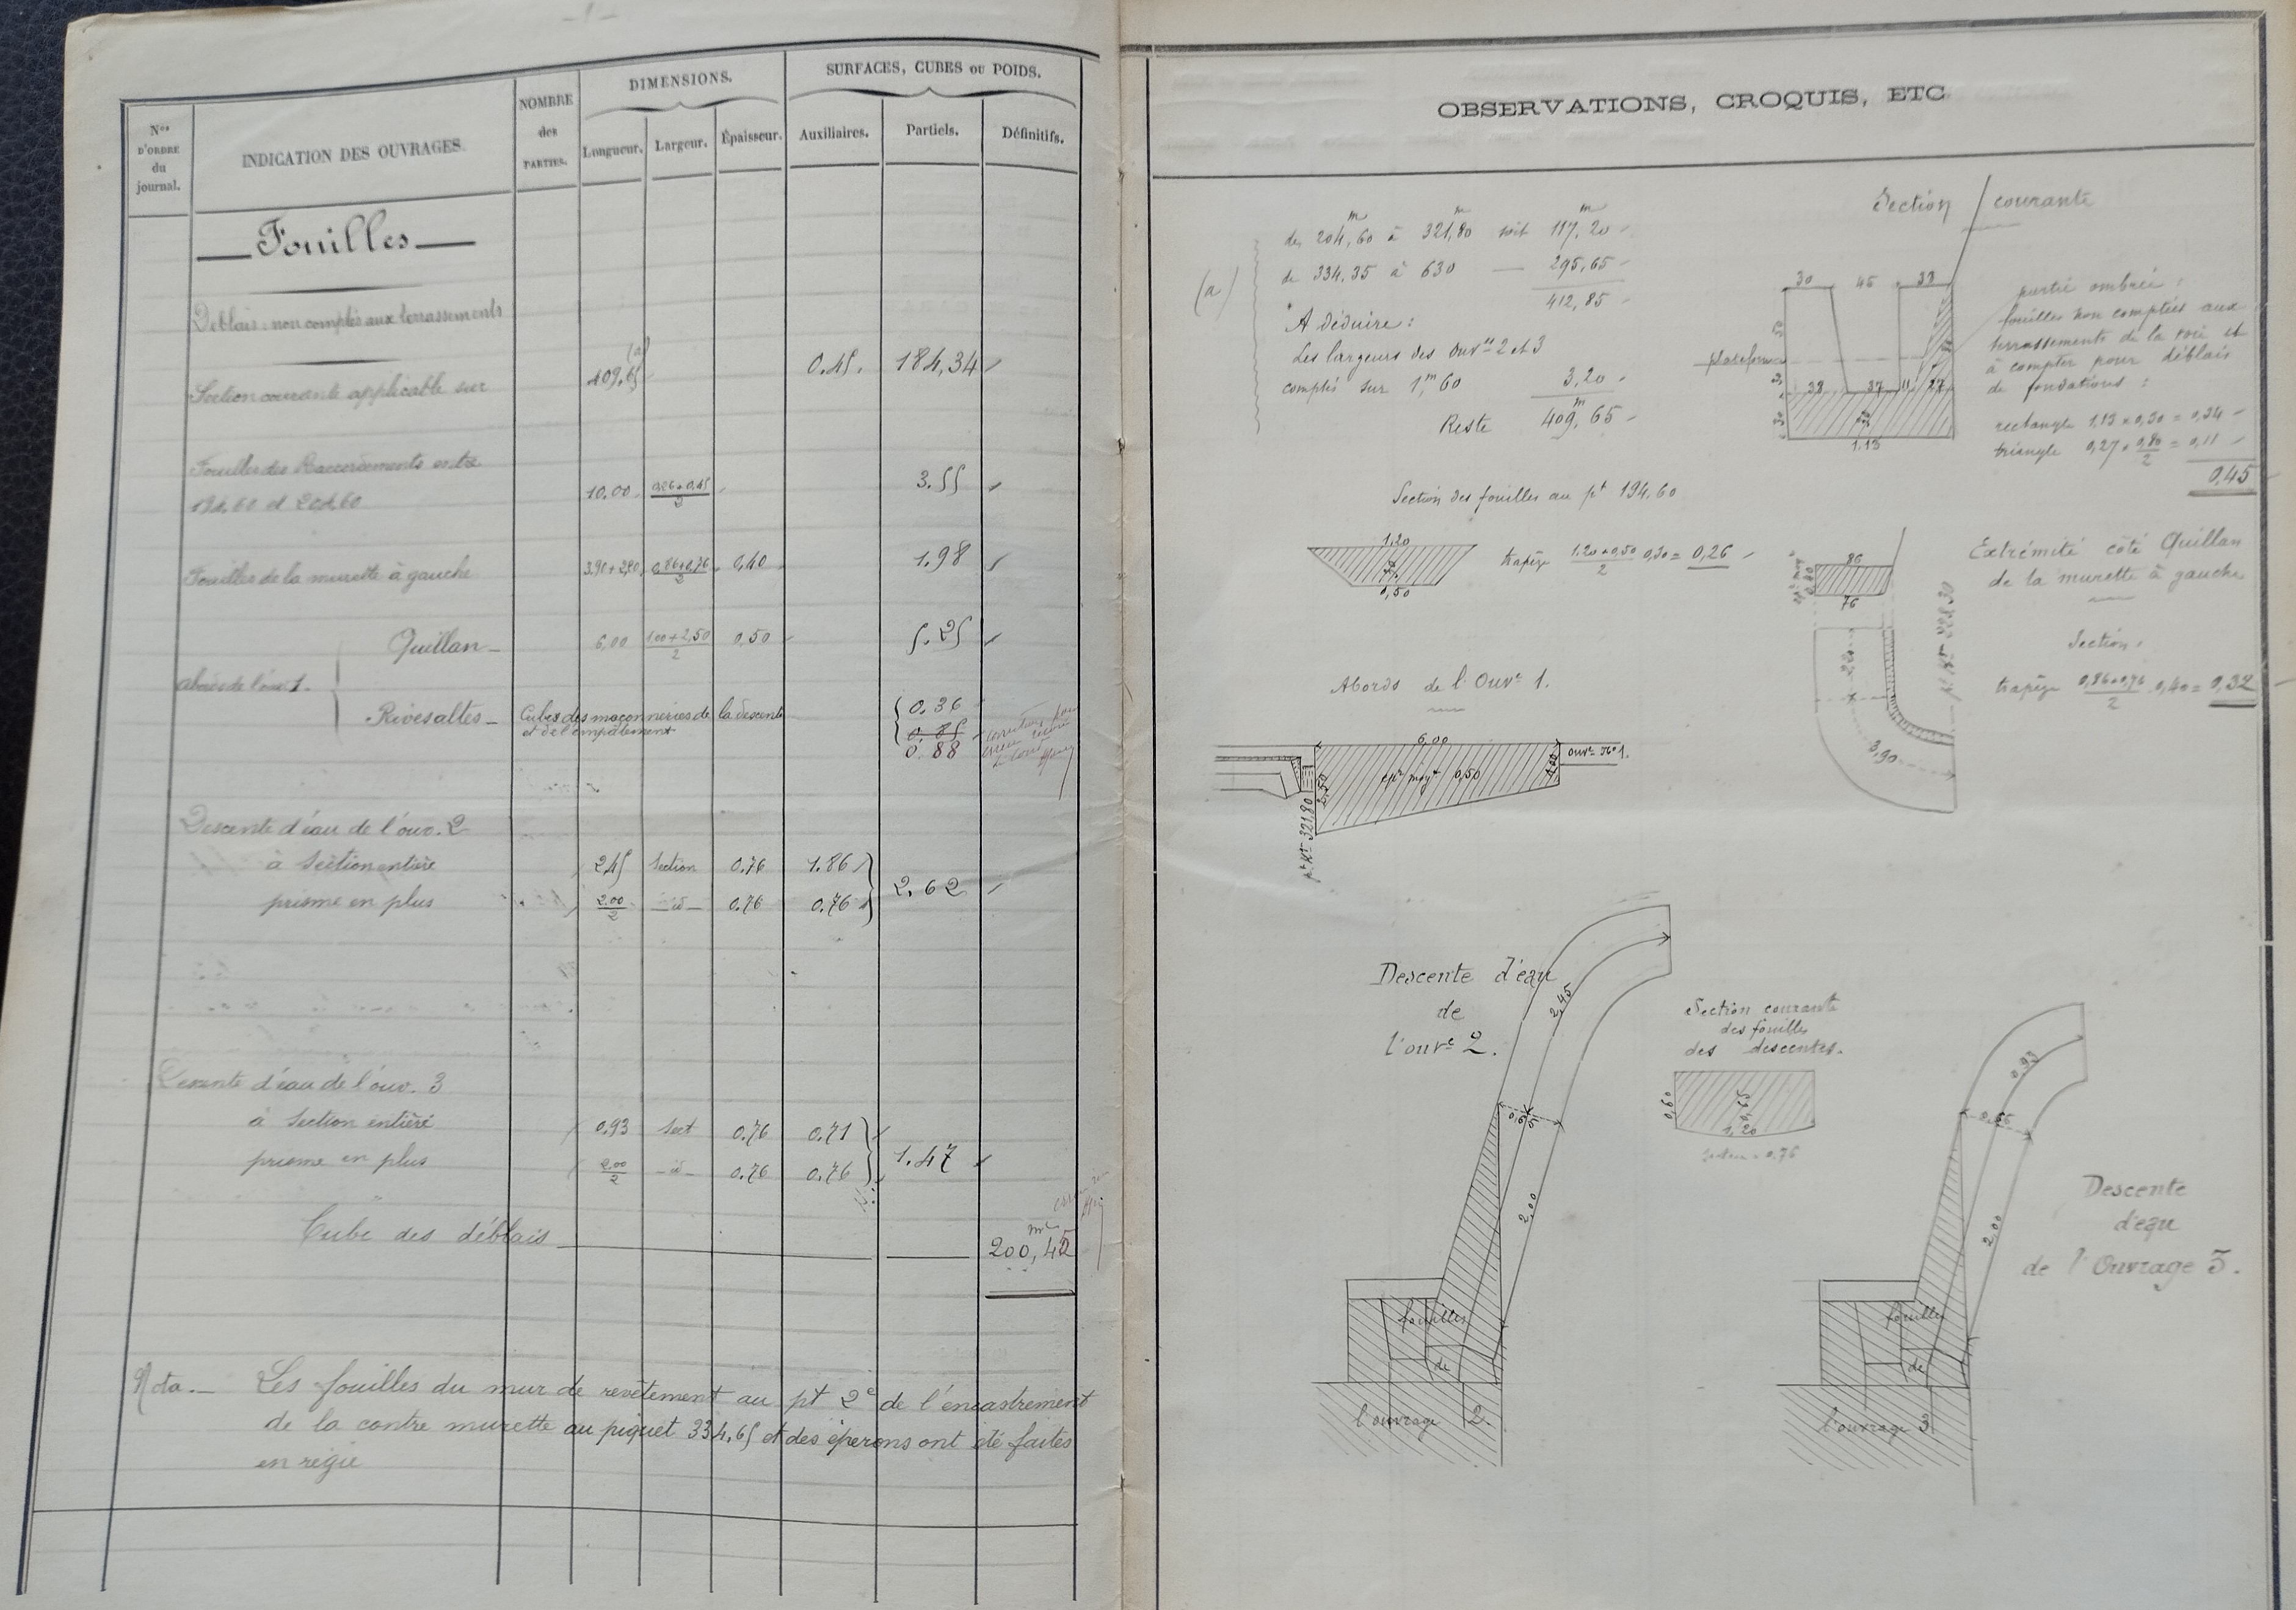 — 1 —
Nos D'ORDRE du journal.
INDICATION DES OUVRAGES.
NOMBRE des PARTIES.
DIMENSIONS.
Longueur.
Largeur.
Épaisseur.
SURFACES, CUBES ou POIDS.
Auxiliaires.
Partiels.
Définitifs.
Fouilles
Déblais non comptés aux terrassements
(a)
Section courante applicable sur 409.65 0.45. 184,34
Fouilles des Raccordements entre
194,60 et 204,60 10.00 0,26+0,45/2 3.55
Fouilles de la murette à gauche 3.90+2,20 0,86+0,76/2 0,40 1.98
Quillan 6,00 1,00+2,50/2 0,50 5.25
abords de l'ouv. 1.
Rivesaltes Cubes des maçonneries de la descente 0.36
et de l'empâtement 0.85
0.88
Descente d'eau de l'ouv. 2
à section entière 2.45 Section 0.76 1.86
prisme en plus 2.00/2 id 0.76 0.76 2.62
Descente d'eau de l'ouv. 3
à section entière 0.93 Sect 0.76 0.71
prisme en plus 2.00/2 id 0.76 0.76 1.47
Cube des déblais 200,45
Nota. Les fouilles du mur de revêtement au pt 2e de l'encastrement
de la contre murette au piquet 334.65 et des éperons ont été faites
en régie
OBSERVATIONS, CROQUIS, ETC
(a)
de 204m,60 à 321m,80 soit 117m,20
de 334.35 à 630 — 295,65
412,85
A déduire :
Les largeurs des Ouvres 2 et 3
comptés sur 1m,60 3,20
Reste 409m,65
Section courante
30 45 33
50
plateforme
30
38 37 11 27
30
1.13
partie ombrée :
fouilles non comptées aux
terrassements de la voie et
à compter pour déblais
de fondations :
rectangle 1,13 x 0,30 = 0,34
triangle 0,27 x 0,80/2 = 0,11
0,45
Section des fouilles au pt 194.60
1,20
0,50
trapèze 1.20+0,50/2 0,30 = 0,26
Extrémité côté Quillan
de la murette à gauche
86
76
2,20
3,90
Section :
trapèze 0,86+0,76/2 . 0,40 = 0,32
Abords de l'Ouvre 1.
6,00
2,50
epr moyne 0,50
1,00
ouvre No 1.
pt Kt 321,80
Descente d'eau
de
l'ouvre 2.
2,45
0,65
2,00
fouilles
de
l'ouvrage 2.
Section courante
des fouilles
des descentes.
0,60
1,20
Section = 0,76
0,93
0,65
2,00
Descente
d'eau
de l'Ouvrage 3.
fouilles
de
l'ouvrage 3.